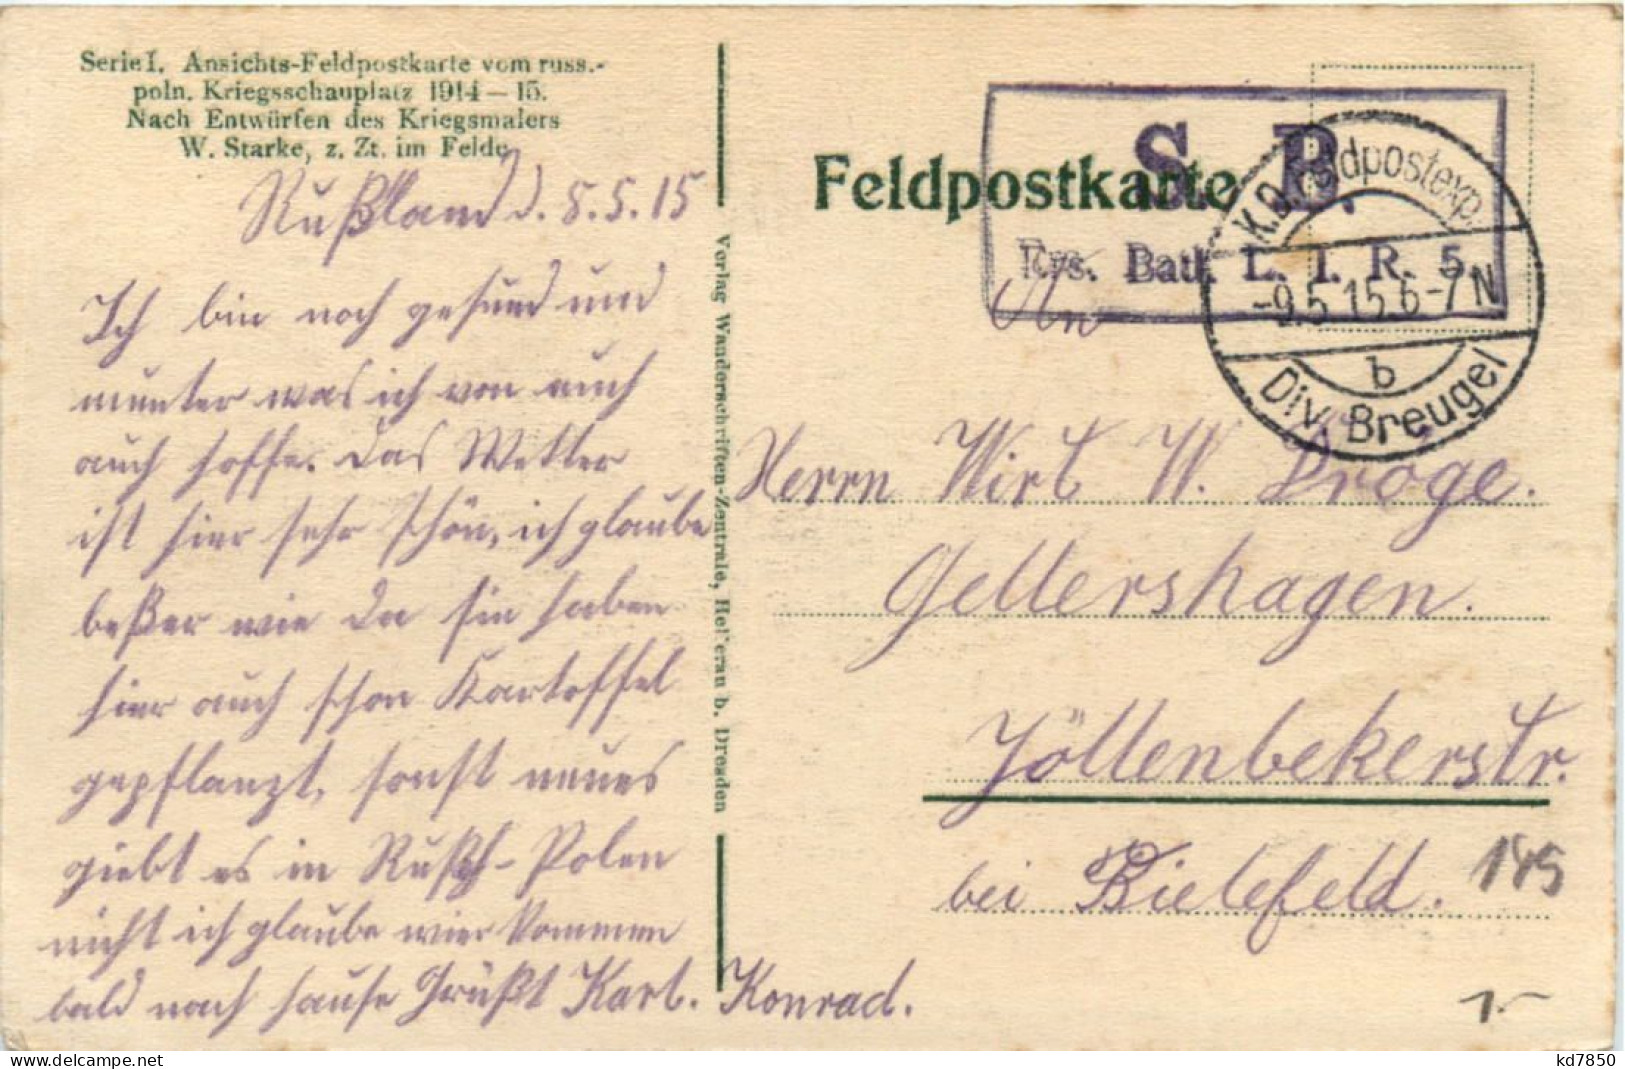 Serie I. Ansichts-Feldpostkarte vom russ.-
poln. Kriegsschauplatz 1914—15.
Nach Entwürfen des Kriegsmalers
W. Starke, z. Zt. im Felde
Rußland d. 8.5.15
Ich bin noch gesund und
munter was ich von euch
auch hoffe. Das Wetter
ist hier sehr schön, ich glaube
beßer wie da sie haben
hier auch schon Kartoffel
gepflanzt, sonst neues
giebt es in Rußß-Polen
nicht ich glaube wier kommen
bald nach hause Grüßt Karl. Konrad.
Verlag Wanderschriften-Zentrale, Hellerau b. Dresden
Feldpostkarte
S. B.
Ers. Batl. L. I. R. 5.
K.D. Feldpostexp.
-9.5.15.6-7N
b
Div. Breugel
An
Herrn Wirt W. Dröge.
Gellershagen.
Jöllenbekerstr.
bei Bielefeld.
145
kd7850